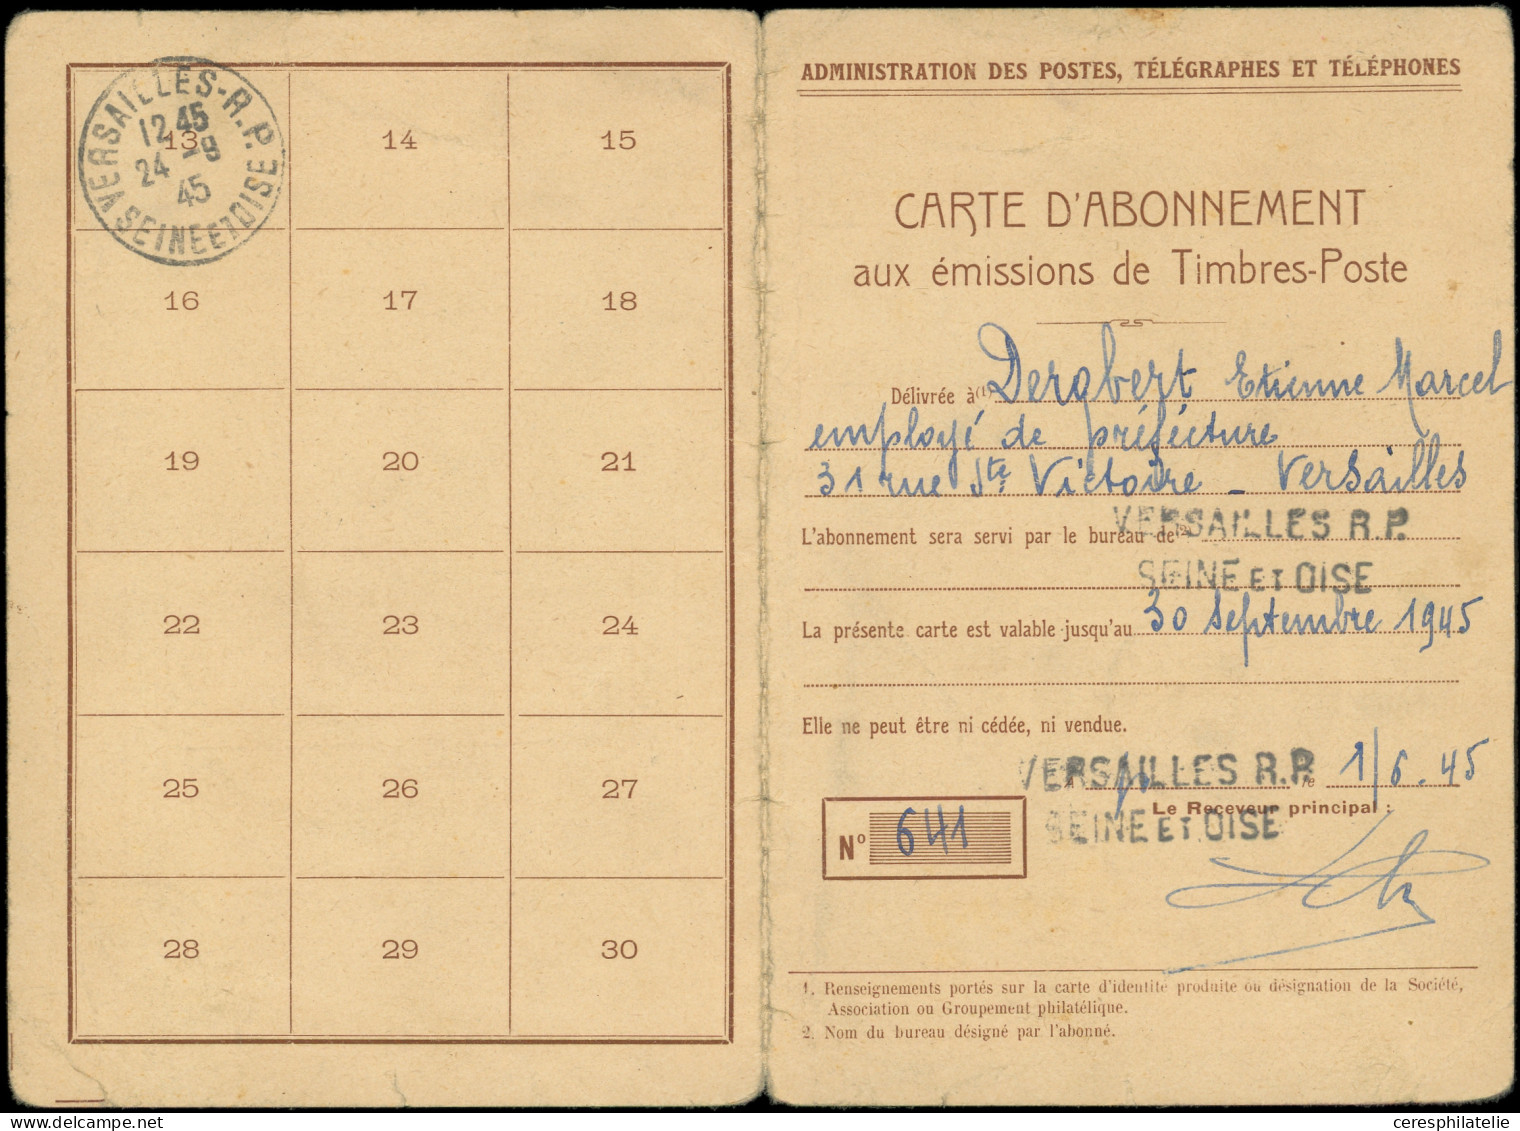 VERSAILLES-R.P.
12 45
24 -9
45
SEINE ET OISE
13 14 15
16 17 18
19 20 21
22 23 24
25 26 27
28 29 30
ADMINISTRATION DES POSTES, TÉLÉGRAPHES ET TÉLÉPHONES
CARTE D'ABONNEMENT
aux émissions de Timbres-Poste
Délivrée à (1) Dergbert Etienne Marcel
employé de préfécture
31 rue Ste Victoire - Versailles
L'abonnement sera servi par le bureau de (2) VERSAILLES R.P.
SEINE ET OISE
La présente carte est valable jusqu'au 30 Septembre 1945
Elle ne peut être ni cédée, ni vendue.
VERSAILLES R.P. le 1/6.45
Le Receveur principal :
SEINE ET OISE
No 641
1. Renseignements portés sur la carte d'identité produite ou désignation de la Société,
Association ou Groupement philatélique.
2. Nom du bureau désigné par l'abonné.
ceresphilatelie